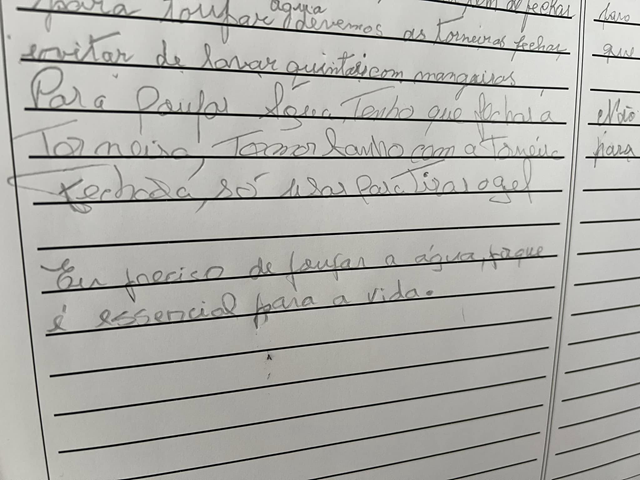 água
para loupar devemos as torneiras fechar
evitar de lavar quintais com mangueiras
Para Poupar Água, Tenho que fechar a
Torneira, Tomar banho com a torneira
Fechada, só usar para Tirar o gel
Eu preciso de poupar a água, porque
é essencial para a vida.
para
que
Não
para